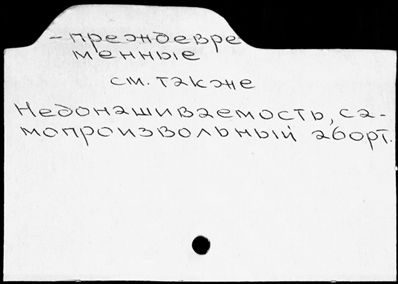 - преждевре
менные
см. также
Недонашиваемость, са-
мопроизвольный аборт.